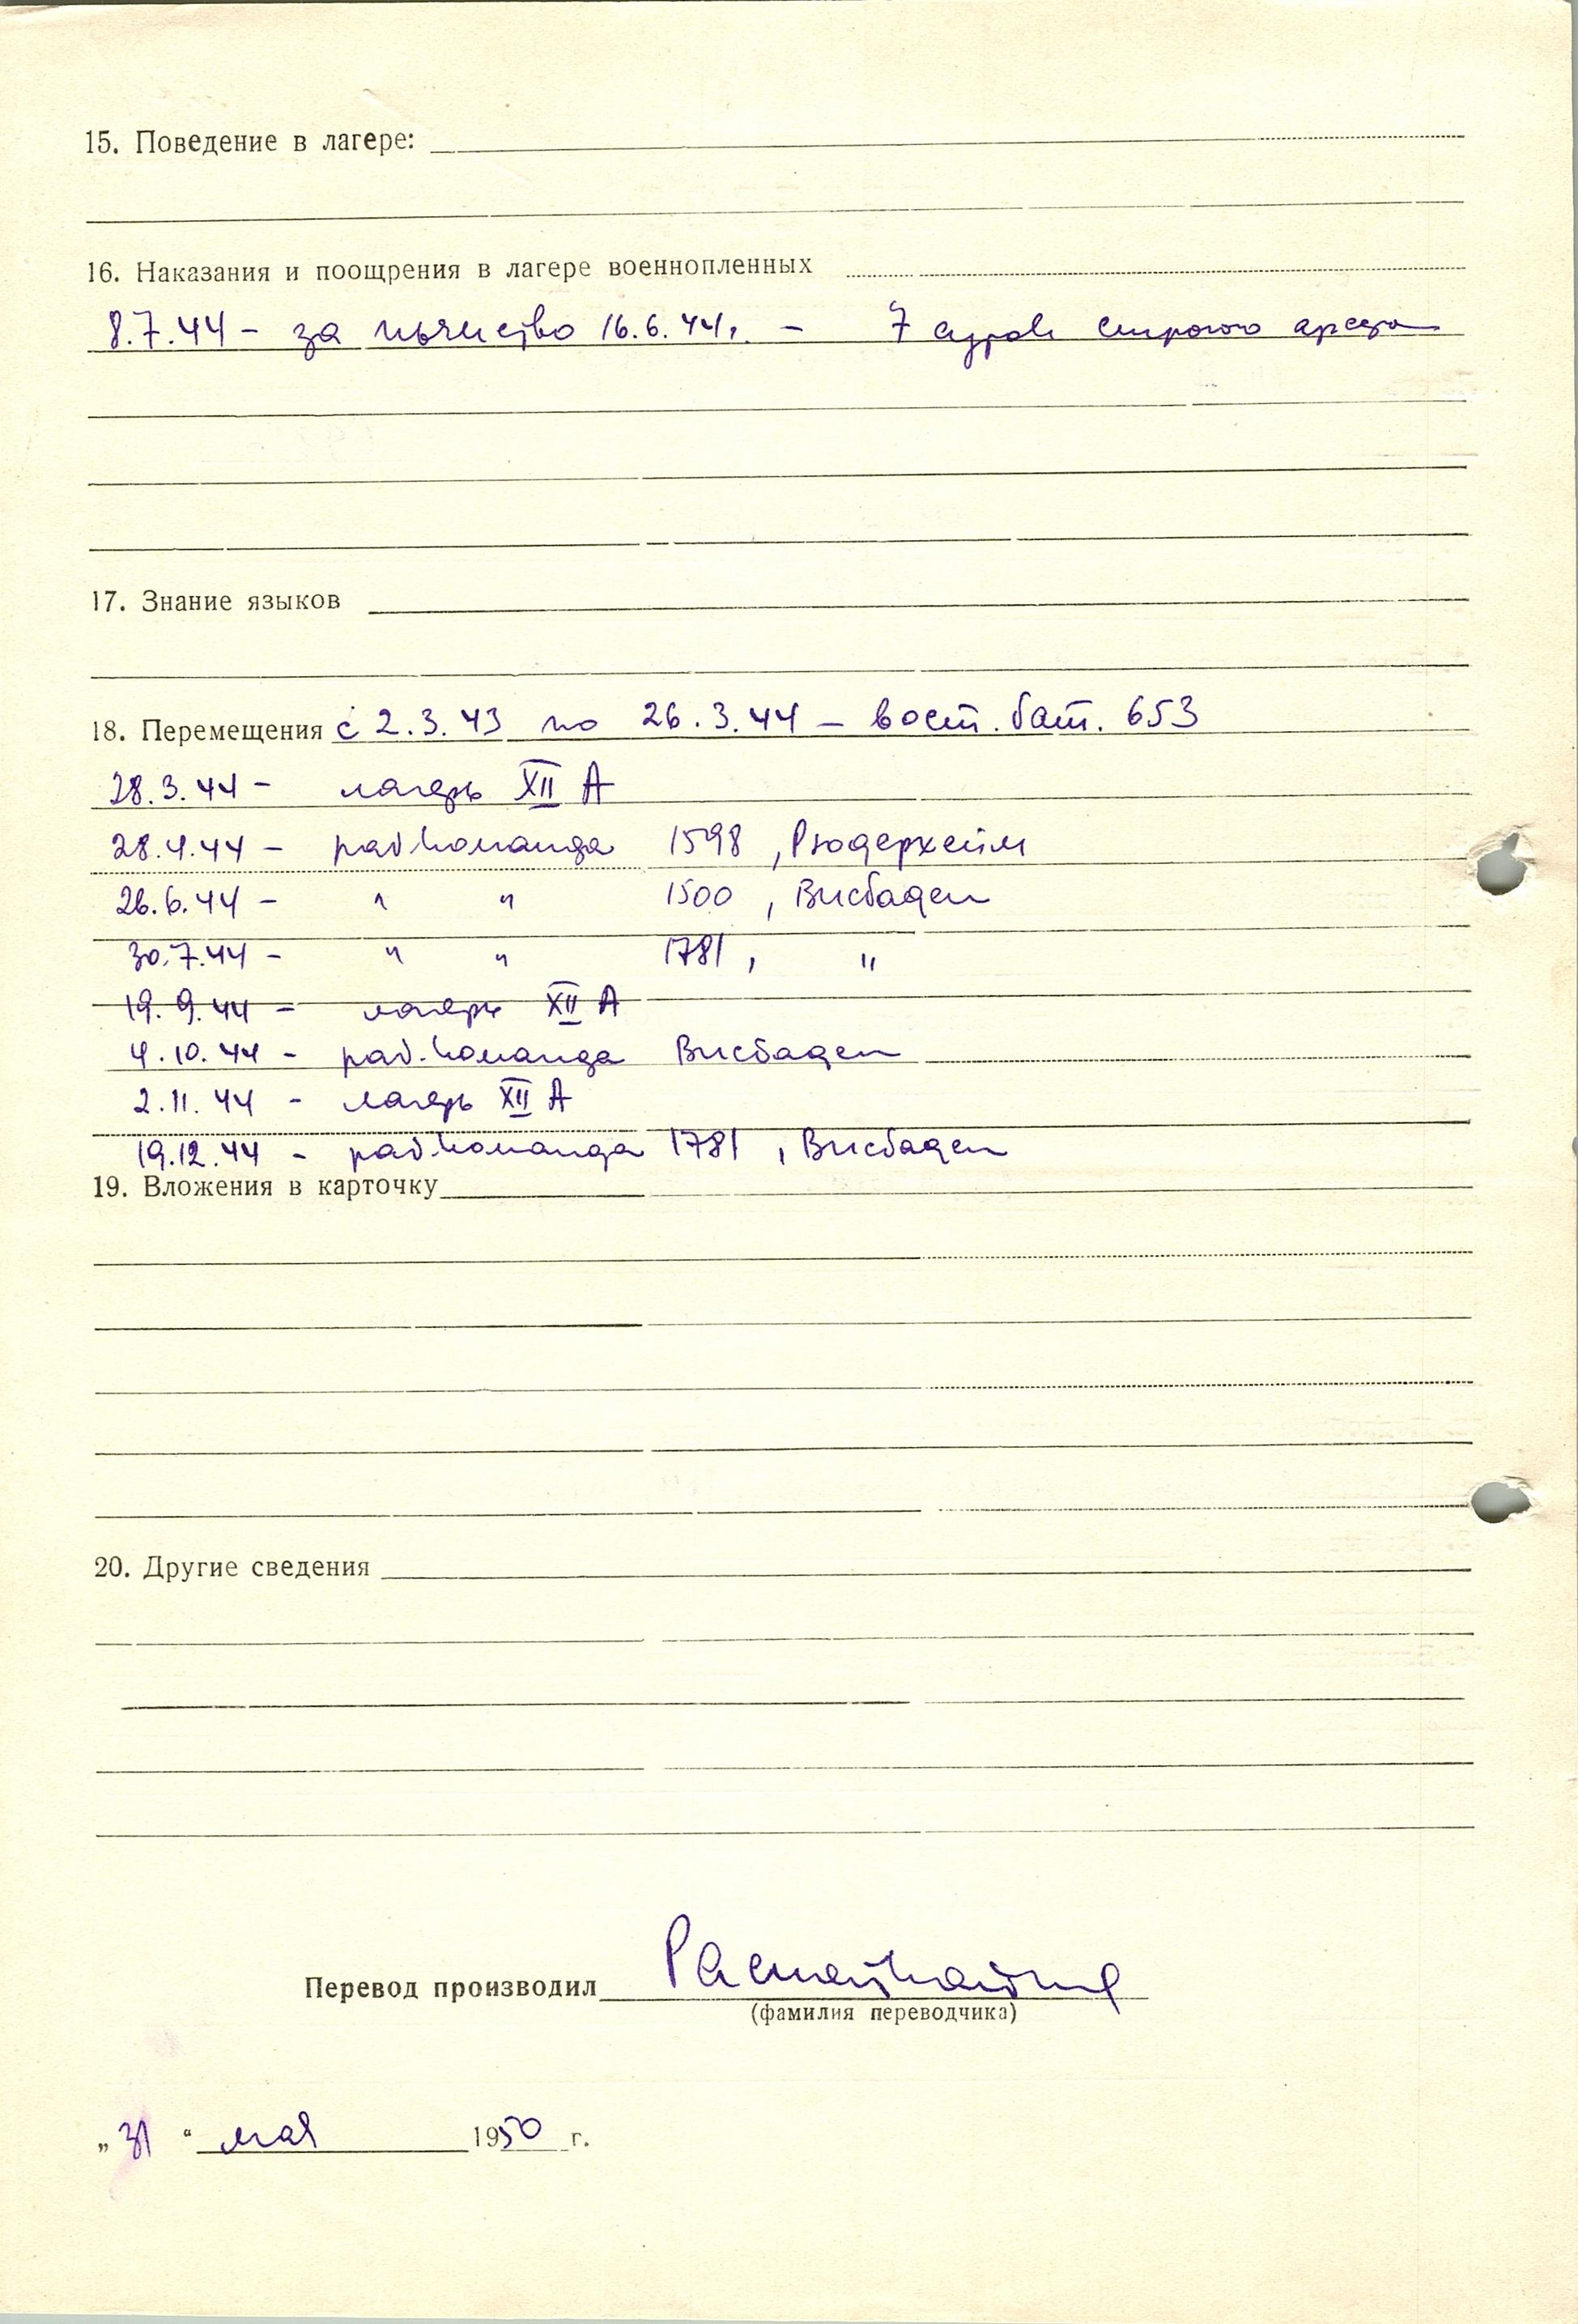 15. Поведение в лагере:
16. Наказания и поощрения в лагере военнопленных
8.7.44 – за пьянство 16.6.44г. – 7 суток строгого ареста
17. Знание языков
18. Перемещения с 2.3.43 по 26.3.44 – вост. бат. 653
28.3.44 – лагерь XII А
28.4.44 – раб.команда 1598, Рюдерхейм
26.6.44 – " " 1500, Висбаден
30.7.44 – " " 1781, "
19.9.44 – лагерь XII А
4.10.44 – раб.команда Висбаден
2.11.44 – лагерь XII А
19.12.44 – раб.команда 1781, Висбаден
19. Вложения в карточку
20. Другие сведения
Перевод производил
(фамилия переводчика)
„31“ мая 1950 г.